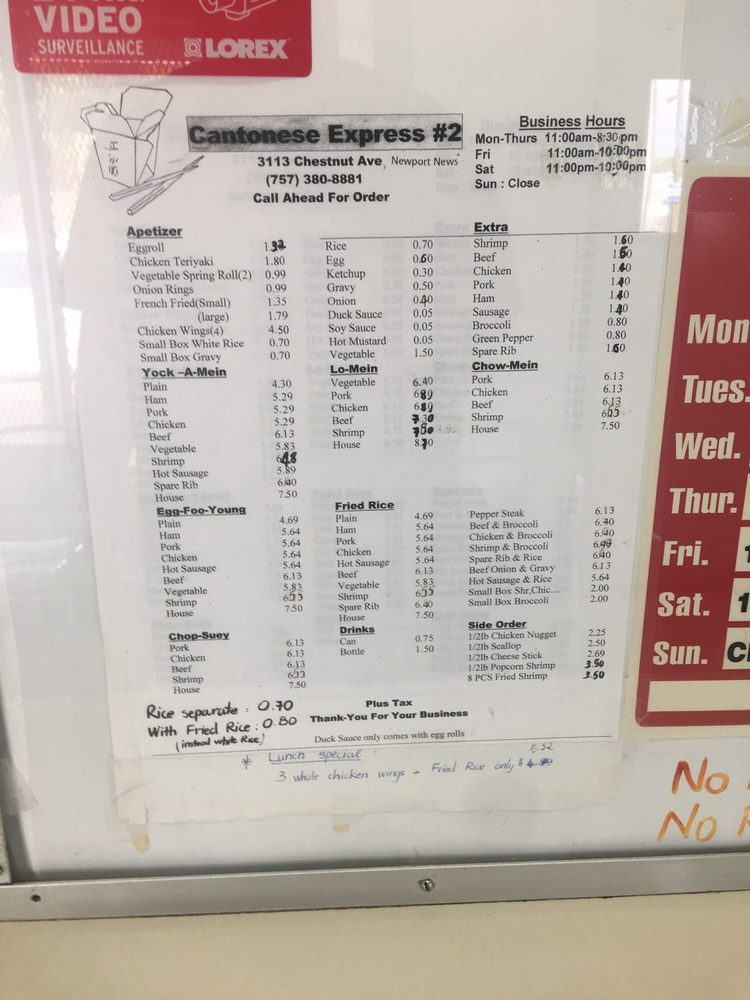 VIDEO
SURVEILLANCE
LOREX
Cantonese Express #2
3113 Chestnut Ave, Newport News
(757) 380-8881
Call Ahead For Order
Business Hours
Mon-Thurs 11:00am-8:30pm
Fri 11:00am-10:00pm
Sat 11:00pm-10:00pm
Sun : Close
Apetizer
Eggroll
Chicken Teriyaki 1.80
Vegetable Spring Roll(2) 0.99
Onion Rings 0.99
French Fried(Small) 1.35
(large) 1.79
Chicken Wings(4) 4.50
Small Box White Rice 0.70
Small Box Gravy 0.70
Rice 0.70
Egg 0.60
Ketchup 0.30
Gravy 0.50
Onion 0.40
Duck Sauce 0.05
Soy Sauce 0.05
Hot Mustard 0.05
Vegetable 1.50
Extra
Shrimp 1.60
Beef 1.60
Chicken 1.40
Pork 1.40
Ham 1.40
Sausage 1.40
Broccoli 0.80
Green Pepper 0.80
Spare Rib 1.60
Yock –A-Mein
Plain 4.30
Ham 5.29
Pork 5.29
Chicken 5.29
Beef 6.13
Vegetable 5.83
Shrimp
Hot Sausage 5.89
Spare Rib 6.40
House 7.50
Lo-Mein
Vegetable 6.40
Pork 6.89
Chicken 6.89
Beef 7.30
Shrimp
House
Chow-Mein
Pork 6.13
Chicken 6.13
Beef 6.13
Shrimp
House 7.50
Egg-Foo-Young
Plain 4.69
Ham 5.64
Pork 5.64
Chicken 5.64
Hot Sausage 5.64
Beef 6.13
Vegetable 5.83
Shrimp
House 7.50
Fried Rice
Plain 4.69
Ham 5.64
Pork 5.64
Chicken 5.64
Hot Sausage 5.64
Beef 6.13
Vegetable 5.83
Shrimp
Spare Rib 6.40
House 7.50
Pepper Steak 6.13
Beef & Broccoli 6.40
Chicken & Broccoli 6.40
Shrimp & Broccoli
Spare Rib & Rice 6.40
Beef Onion & Gravy 6.13
Hot Sausage & Rice 5.64
Small Box Shr,Chic... 2.00
Small Box Broccoli 2.00
Chop-Suey
Pork 6.13
Chicken 6.13
Beef 6.13
Shrimp
House 7.50
Drinks
Can 0.75
Bottle 1.50
Side Order
1/2lb Chicken Nugget 2.25
1/2lb Scallop 2.50
1/2lb Cheese Stick 2.69
1/2lb Popcorn Shrimp 3.50
8 PCS Fried Shrimp 3.50
Rice separate : 0.70
With Fried Rice : 0.80
(instead white Rice)
Plus Tax
Thank-You For Your Business
Duck Sauce only comes with egg rolls
* Lunch special :
3 whole chicken wings + Fried Rice only $
Mon
Tues.
Wed.
Thur.
Fri. 1
Sat. 1
Sun.
No
No